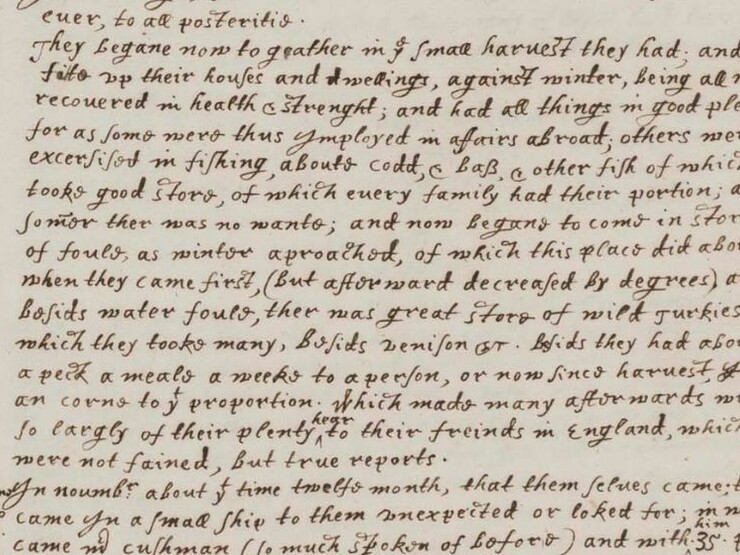 ever, to all posteritie.
They begane now to geather in yᵉ small harvest they had; and
fitte vp their houses and dwellings, against winter, being all
recovered in health & strenght; and had all things in good
for as some were thus ymployed in affairs abroad; others
excersised in fishing, aboute codd, & bass, & other fish of
tooke good store, of which every family had their portion;
som̄er ther was no wante; and now begane to come in
of foule, as winter aproached, of which this place did
when they came first, (but afterward decreased by degrees)
besids water foule, ther was great store of wild Turkies
which they tooke many, besids venison &c. Bsids they had
a peck a meale a weeke to a person, or now since harvest,
an corne to yᵗ proportion. Which made many afterwards
so largly of their plenty hear to their freinds in England,
were not fained, but true reports.
In noumbʳ about yᵗ time twelfe month, that them selves came,
came yn a small ship to them vnexpected or loked for; in
came mʳ cushman (so much spoken of before) and with him 35.